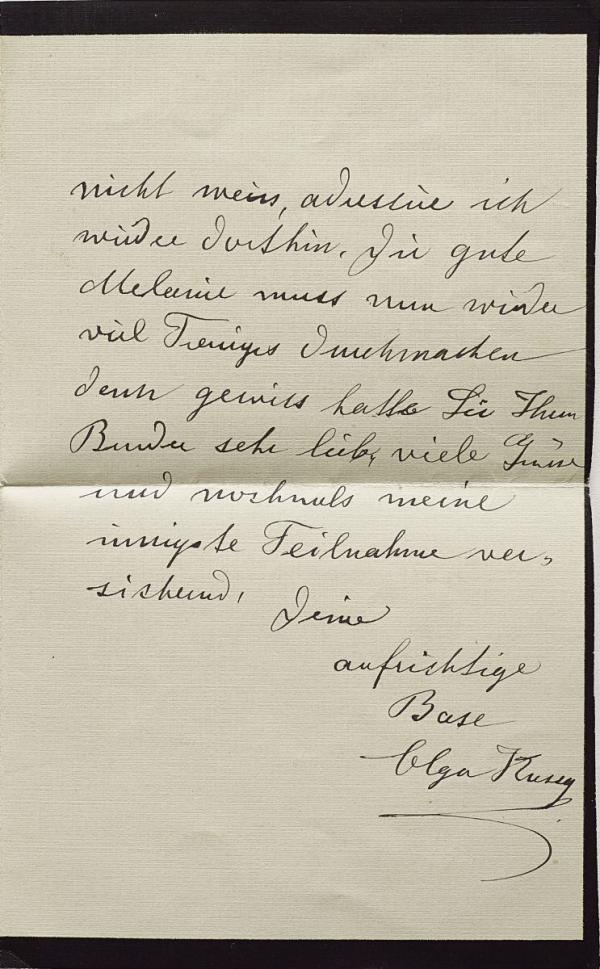 nicht weiss, adressire ich
wieder dorthin. Die gute
Melanie muss nun wieder
viel Trauriges durchmachen
denn gewiss hatte Sie Ihren
Bruder sehr lieb, viele Grüsse
und nochmals meine
innigste Teilnahme ver-
sichernd,
Deine
aufrichtige
Base
Olga